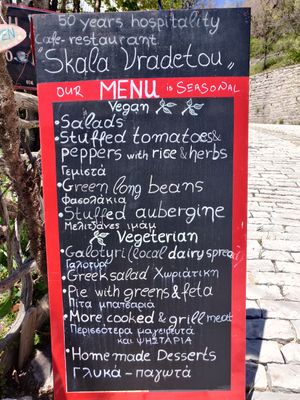 50 years hospitality
Cafe-restaurant
"Skala Vradetou"
OUR MENU is SEASONAL
Vegan
• Salads
• Stuffed tomatoes &
peppers with rice & herbs
Γεμιστά
• Green long beans
Φασολάκια
• Stuffed aubergine
Μελιτζάνες ιμάμ
Vegeterian
• Galotyri (local dairy spread
Γαλοτύρι
• Greek salad Χωριάτικη
• Pie with greens & feta
Πίτα μπατσαριά
• More cooked & grill meat
Περισσότερα μαγειρευτά
και ψΗΣΤΑΡΙΑ
• Home made Desserts
Γλυκά - παγωτά